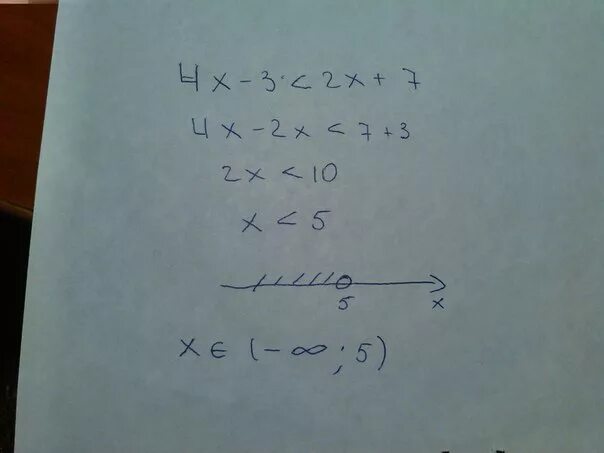 4x - 3 < 2x + 7
4x - 2x < 7 + 3
2x < 10
x < 5
5 x
x ∈ (-∞; 5)